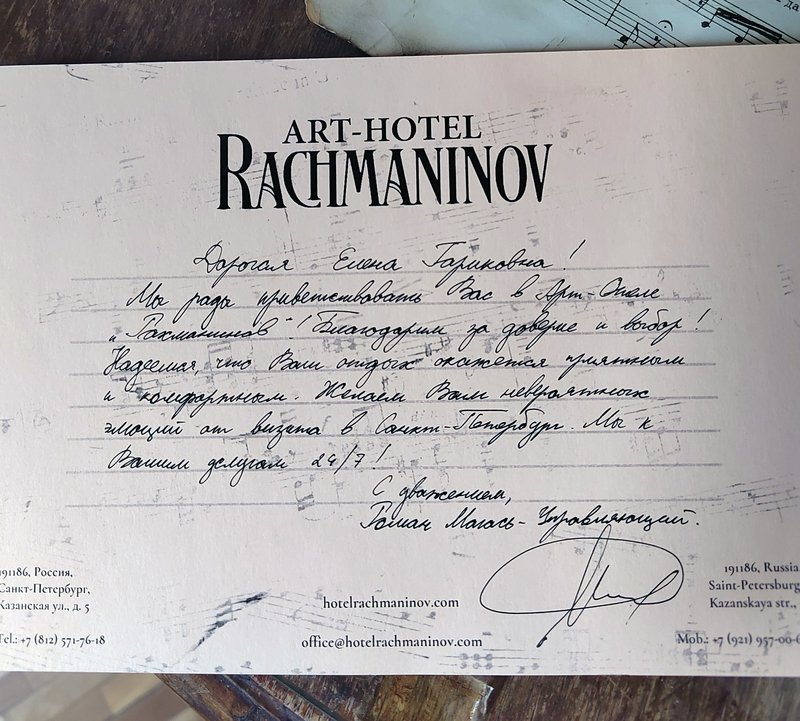 ART-HOTEL
RACHMANINOV
Дорогая Елена Гариковна!
Мы рады приветствовать Вас в Арт-Отеле
„Рахманинов"! Благодарим за доверие и выбор!
Надеемся, что Ваш отдых окажется приятным
и комфортным. Желаем Вам невероятных
эмоций от визита в Санкт-Петербург. Мы к
Вашим услугам 24/7!
С уважением,
Роман - Управляющий.
191186, Россия,
Санкт-Петербург,
Казанская ул., д. 5
Tel.: +7 (812) 571-76-18
hotelrachmaninov.com
office@hotelrachmaninov.com
191186, Russia
Saint-Petersburg
Kazanskaya str.,
Mob.: +7 (921) 957-00-